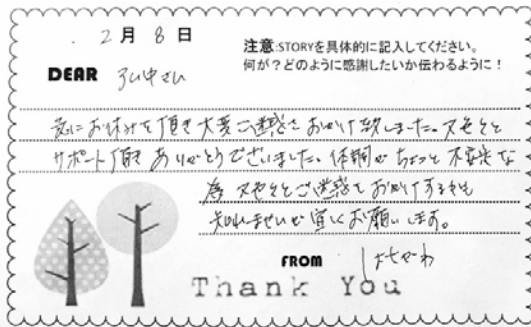 2月8日
注意:STORYを具体的に記入してください。
何が?どのように感謝したいか伝わるように!
DEAR さん
急にお休みを頂き大変ご迷惑をおかけ致しました。又色々と
サポート頂きありがとうございました。体調がちょっと不安定な
為又色々とご迷惑をおかけするかも
知れませんが宜しくお願いします。
FROM
Thank You